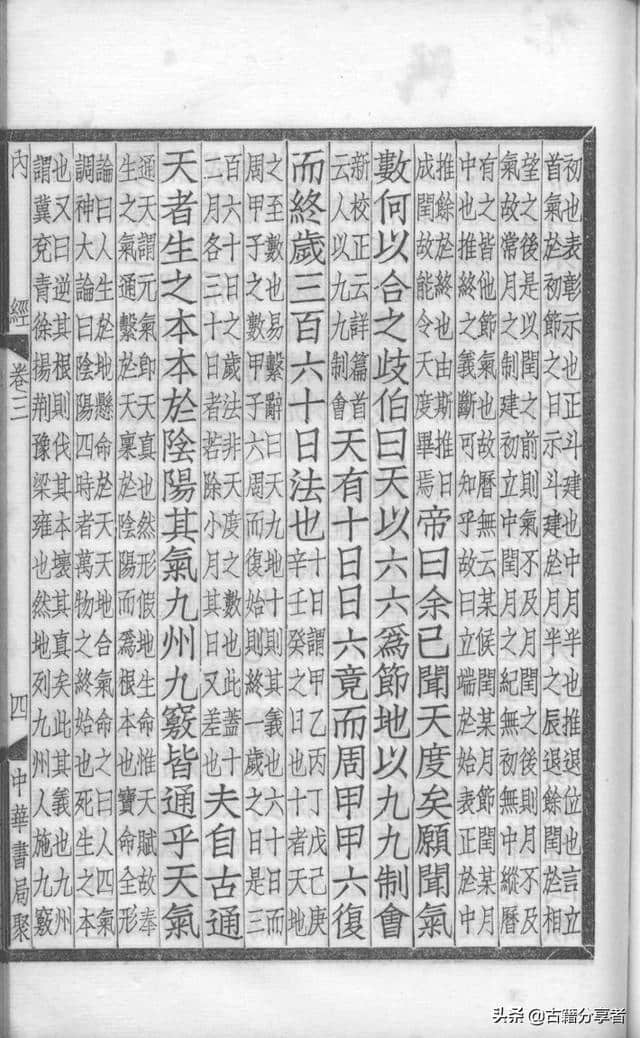 初也表彰示也正斗建也中月半也推退位也言立
首氣於初節之日示斗建於月半之辰退餘閏於相
望之後是以閏之前則氣不及月閏之後則月不及
氣故常月之制建初立中閏月之紀無初無中縱曆
有之皆他節氣也故曆無云某候閏某月節閏某月
中也推終之義斷可知乎故曰立端於始表正於中
推餘於終也由斯推日
成閏故能令天度畢焉
帝曰余已聞天度矣願聞氣
數何以合之歧伯曰天以六六爲節地以九九制會
新校正云詳篇首
云人以九九制會
天有十日日六竟而周甲甲六復
而終歲三百六十日法也
十日謂甲乙丙丁戊己庚
辛壬癸之日也十者天地
之至數也易繫辭曰天九地十則其義也六十日而
周甲子之數甲子六周而復始則終一歲之日是三
百六十日之歲法非天度之數也此蓋十
二月各三十日者若除小月其日又差也
夫自古通
天者生之本本於陰陽其氣九州九竅皆通乎天氣
通天謂元氣卽天真也然形假地生命惟天賦故奉
生之氣通繫於天稟於陰陽而爲根本也寶命全形
論曰人生於地懸命於天天地合氣命之曰人四氣
調神大論曰陰陽四時者萬物之終始也死生之本
也又曰逆其根則伐其本壞其真矣此其義也九州
謂冀兗青徐揚荊豫梁雍也然地列九州人施九竅
內經 卷三 四 中華書局聚
头条 @古籍分享者